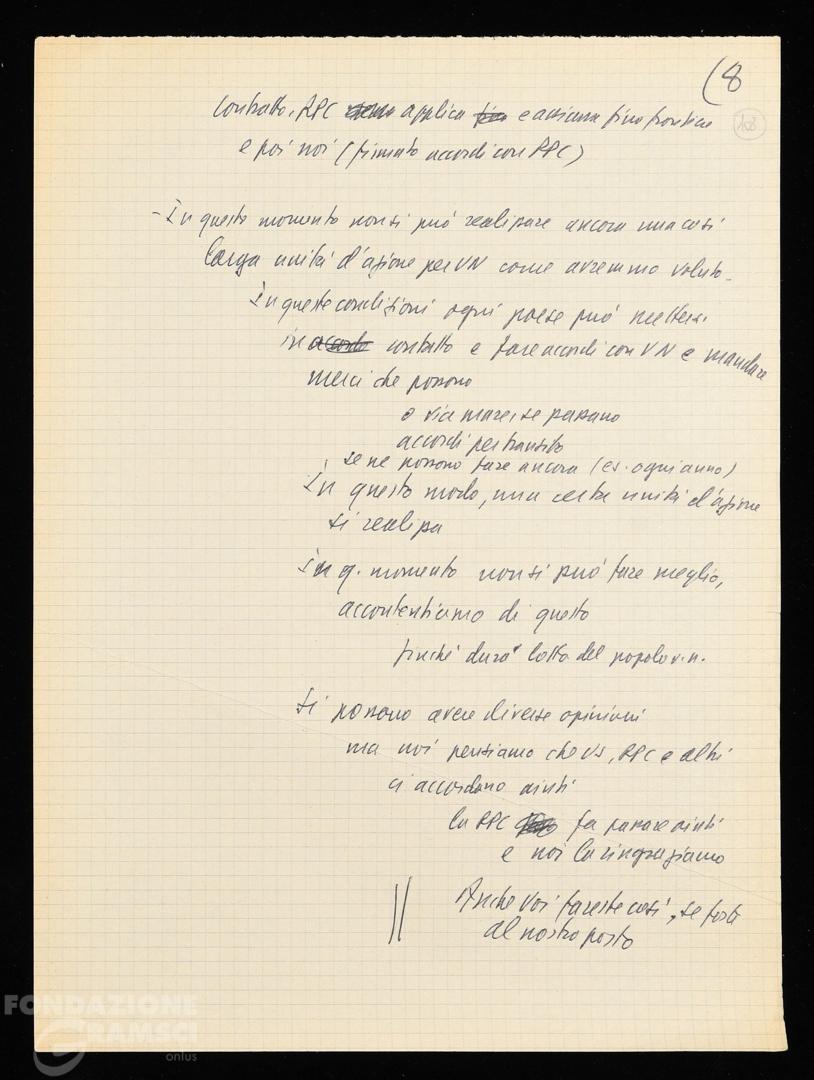 (8
103
contratto, RPC applica e assicura fino frontiera
e poi noi (firmato accordi con RPC)
- In questo momento non si può realizzare ancora una così
larga unità d'azione per VN come avremmo voluto.
In queste condizioni ogni paese può mettersi
in accordo contatto e fare accordi con VN e mandare
merci che possono
o via mare, se passano
accordi per transito
se ne possono fare ancora (es. ogni anno)
In questo modo, una certa unità d'azione
si realizza
In q. momento non si può fare meglio,
accontentiamo di questo
finché dura lotta del popolo v.n.
Si possono avere diverse opinioni
ma noi pensiamo che US, RPC e altri
ci accordano aiuti
la RPC fa passare aiuti
e noi la ringraziamo
Anche voi fareste così, se foste
al nostro posto
FONDAZIONE
GRAMSCI
onlus